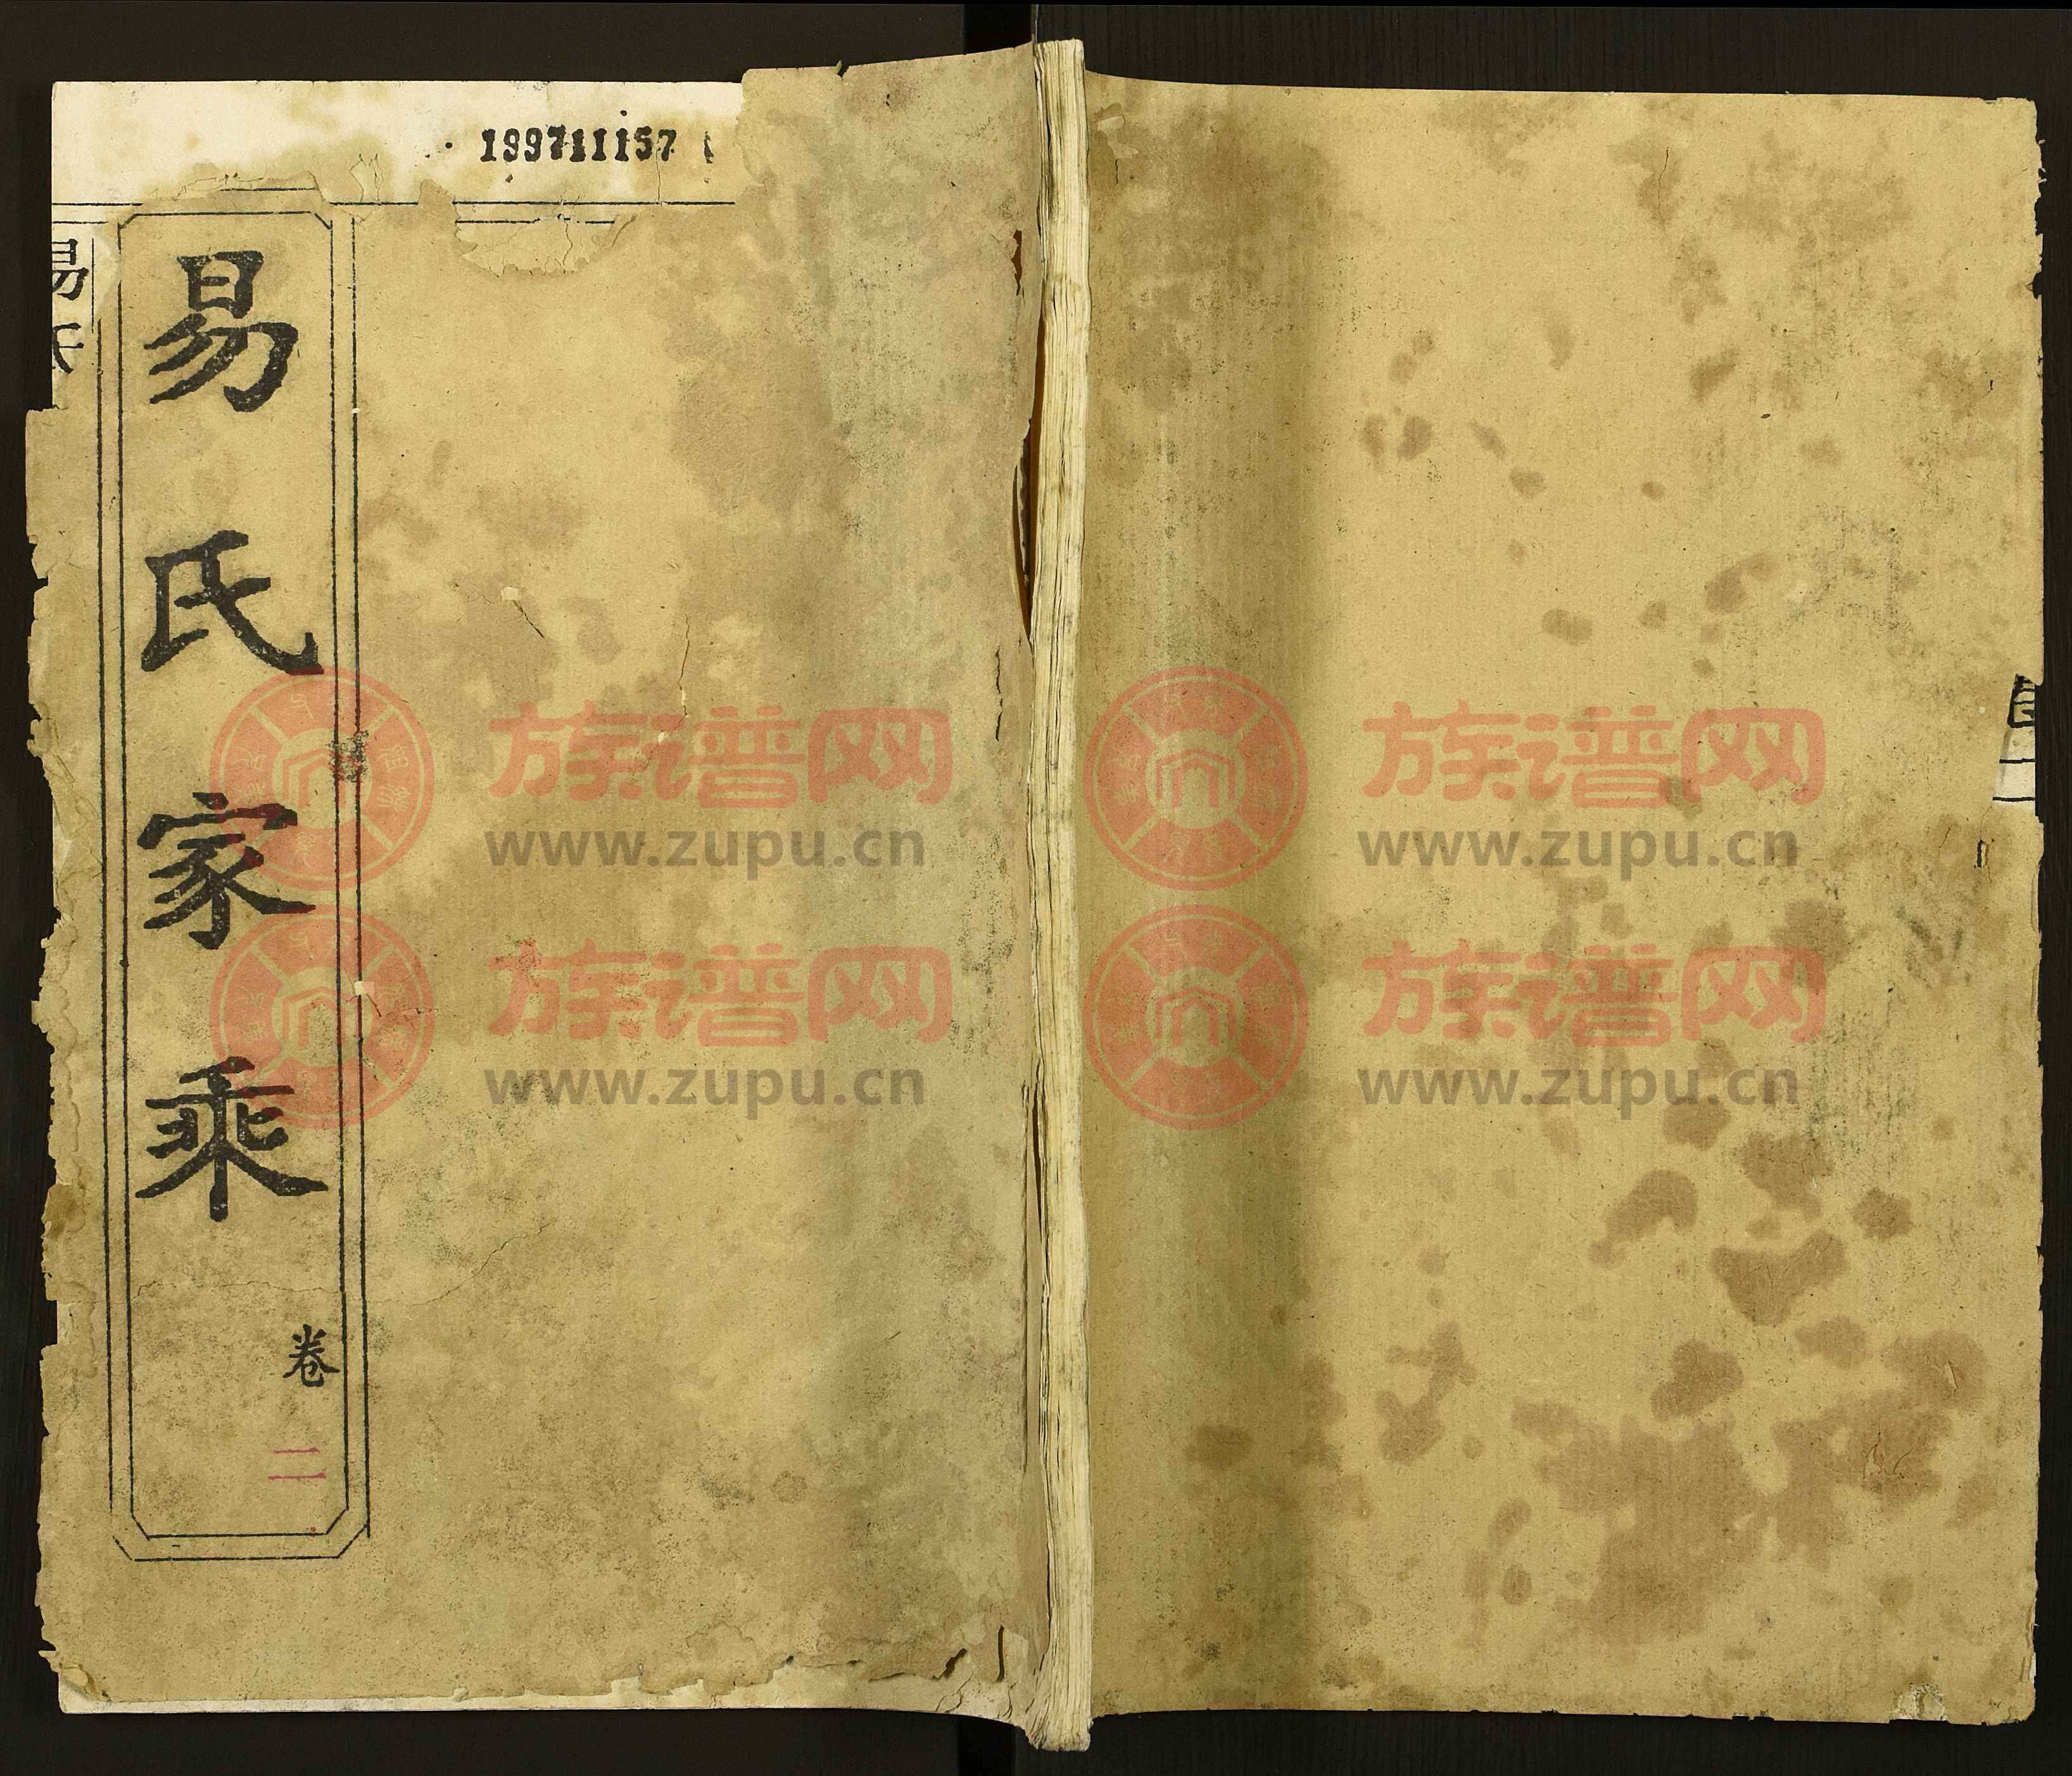 199711157
易氏
易氏家乘
卷二
族谱网
www.zupu.cn
族谱网
www.zupu.cn
族谱网
www.zupu.cn
族谱网
www.zupu.cn